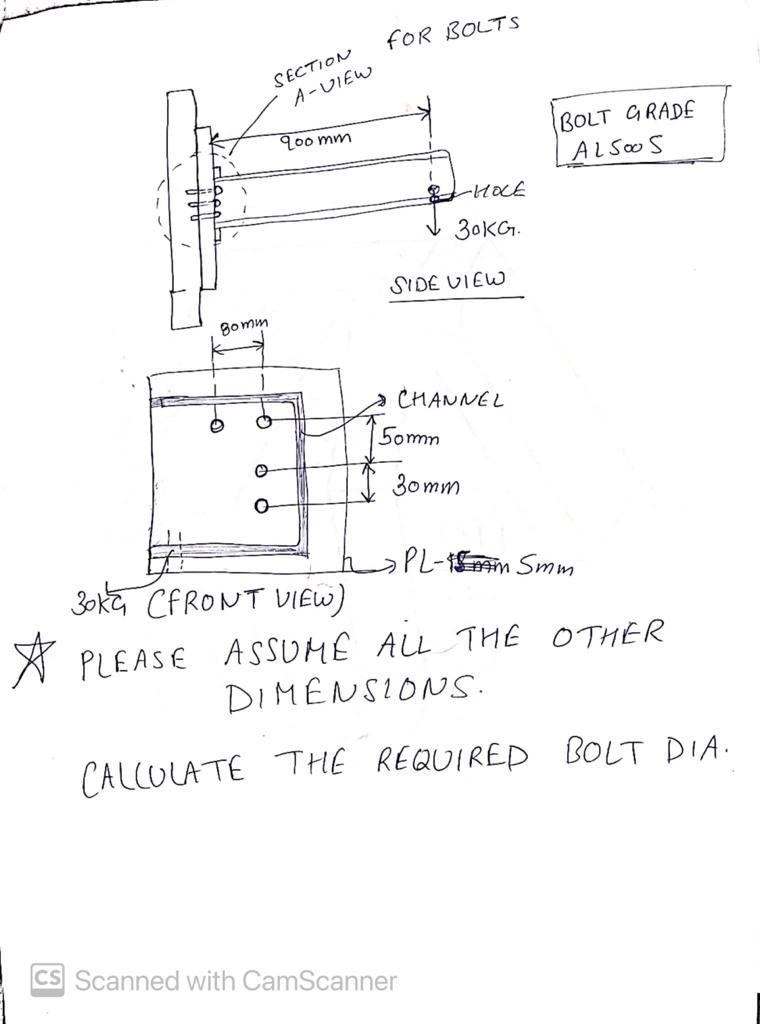 FOR BOLTS
SECTION
A-VIEW
BOLT GRADE
A1500S
900mm
HOLE
30KG.
SIDE VIEW
80mm
CHANNEL
50mm
30mm
PL- 5mm
30KG (FRONT VIEW)
PLEASE ASSUME ALL THE OTHER
DIMENSIONS.
CALCULATE THE REQUIRED BOLT DIA.
CS Scanned with CamScanner